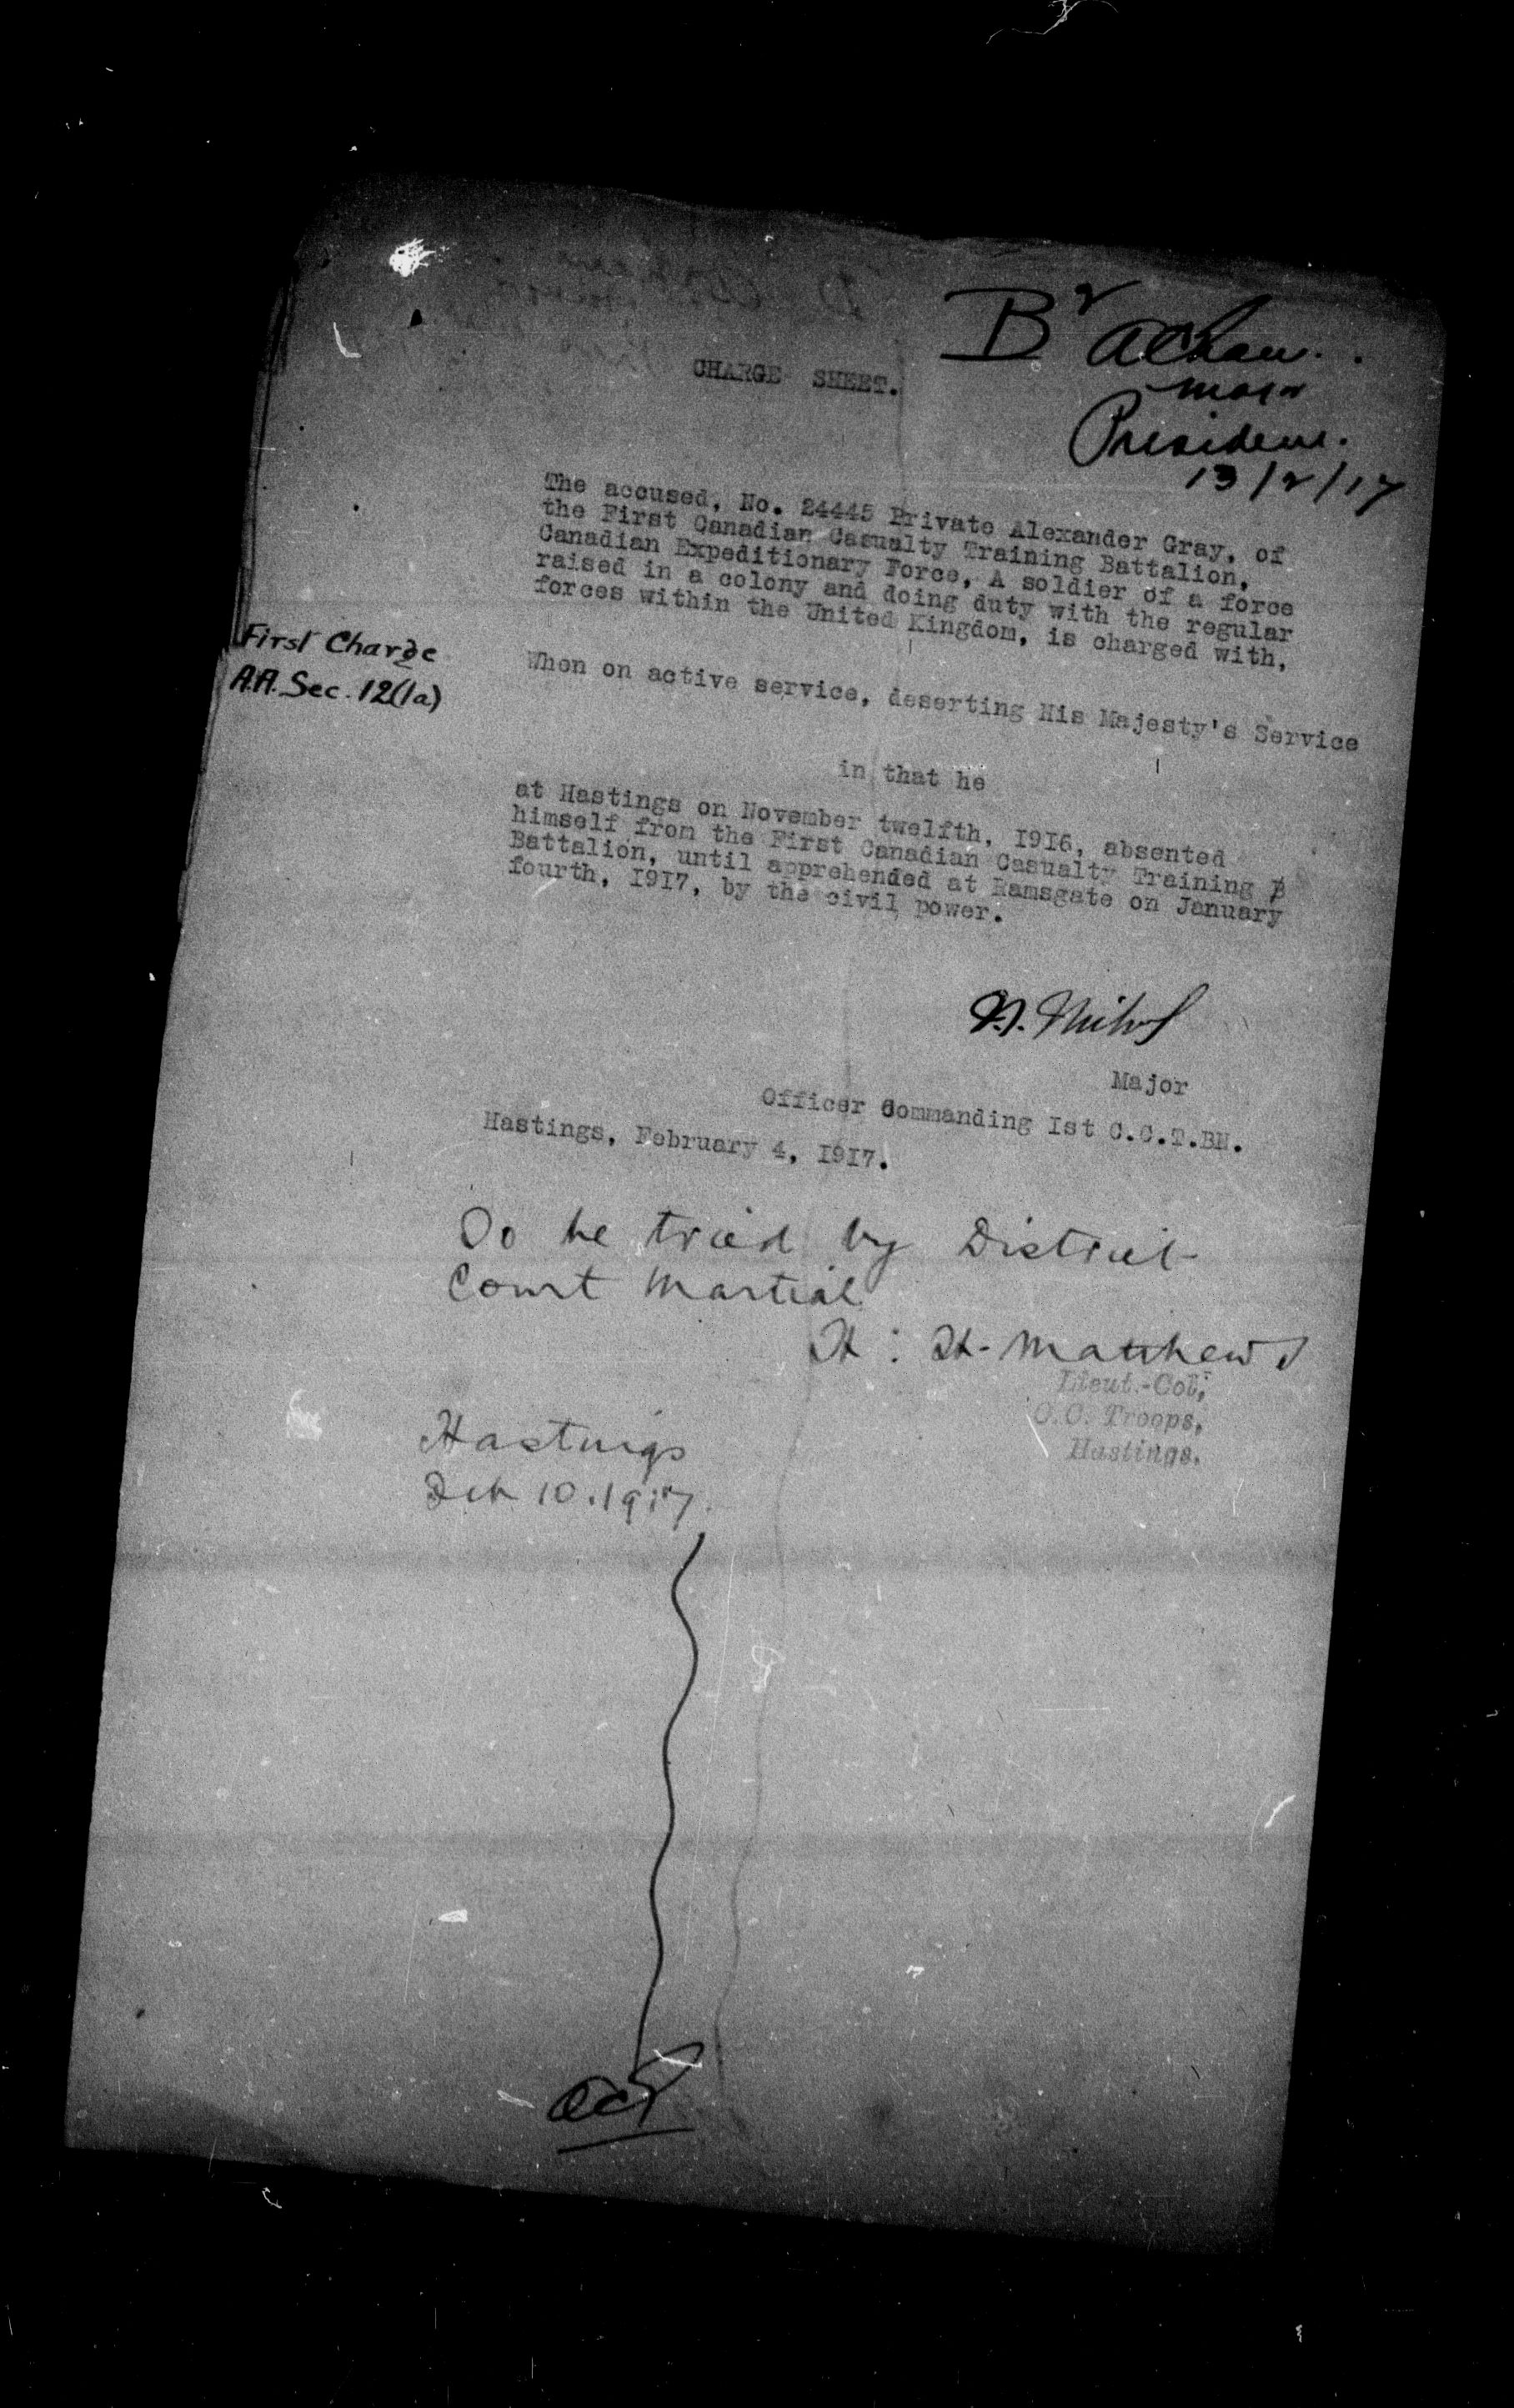 B
Major
President.
13/2/17
CHARGE SHEET.
The accused, No. 24445 Private Alexander Gray, of
the First Canadian Casualty Training Battalion,
Canadian Expeditionary Force, A soldier of a force
raised in a colony and doing duty with the regular
forces within the United Kingdom, is charged with,
First Charge
A.A. Sec. 12(1a)
When on active service, deserting His Majesty's Service
in that he
at Hastings on November twelfth, 1916, absented
himself from the First Canadian Casualty Training B
Battalion, until apprehended at Ramsgate on January
fourth, 1917, by the civil power.
Major
Officer Commanding Ist C.C.T.BN.
Hastings, February 4, 1917.
To be tried by District
Court Martial
Matthews
Lieut.-Col;
O.C. Troops,
Hastings.
Hastings
Feb 10.1917.